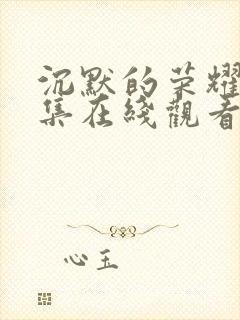 沉默的荣耀
集在綫觀看
心玉